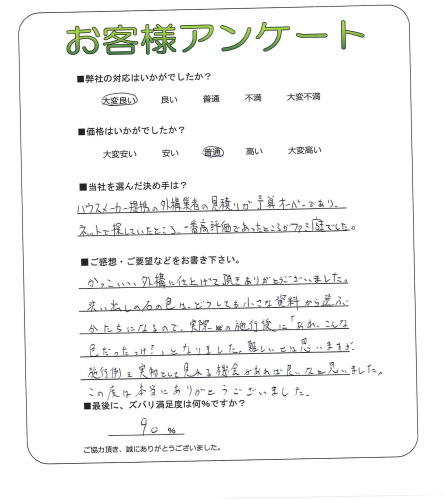 お客様アンケート
■弊社の対応はいかがでしたか？
大変良い 良い 普通 不満 大変不満
■価格はいかがでしたか？
大変安い 安い 普通 高い 大変高い
■当社を選んだ決め手は？
ハウスメーカー提携の外構業者の見積りが予算オーバーであり、
ネットで探していたところ、一番高評価であったところがファミ庭でした。
■ご感想・ご要望などをお書き下さい。
かっこいい外構に仕上げて頂きありがとうございました。
洗い出しの石の色は、どうしても小さな資料から選ぶ
今たちになるので、実際の施行後に「なか、こんな
色だったっけ？」となりました。難しいとは思いますが
施行例を実物として見れる機会があれば良いなと思いました。
この度は本当にありがとうございました。
■最後に、ズバリ満足度は何％ですか？
90 ％
ご協力頂き、誠にありがとうございました。